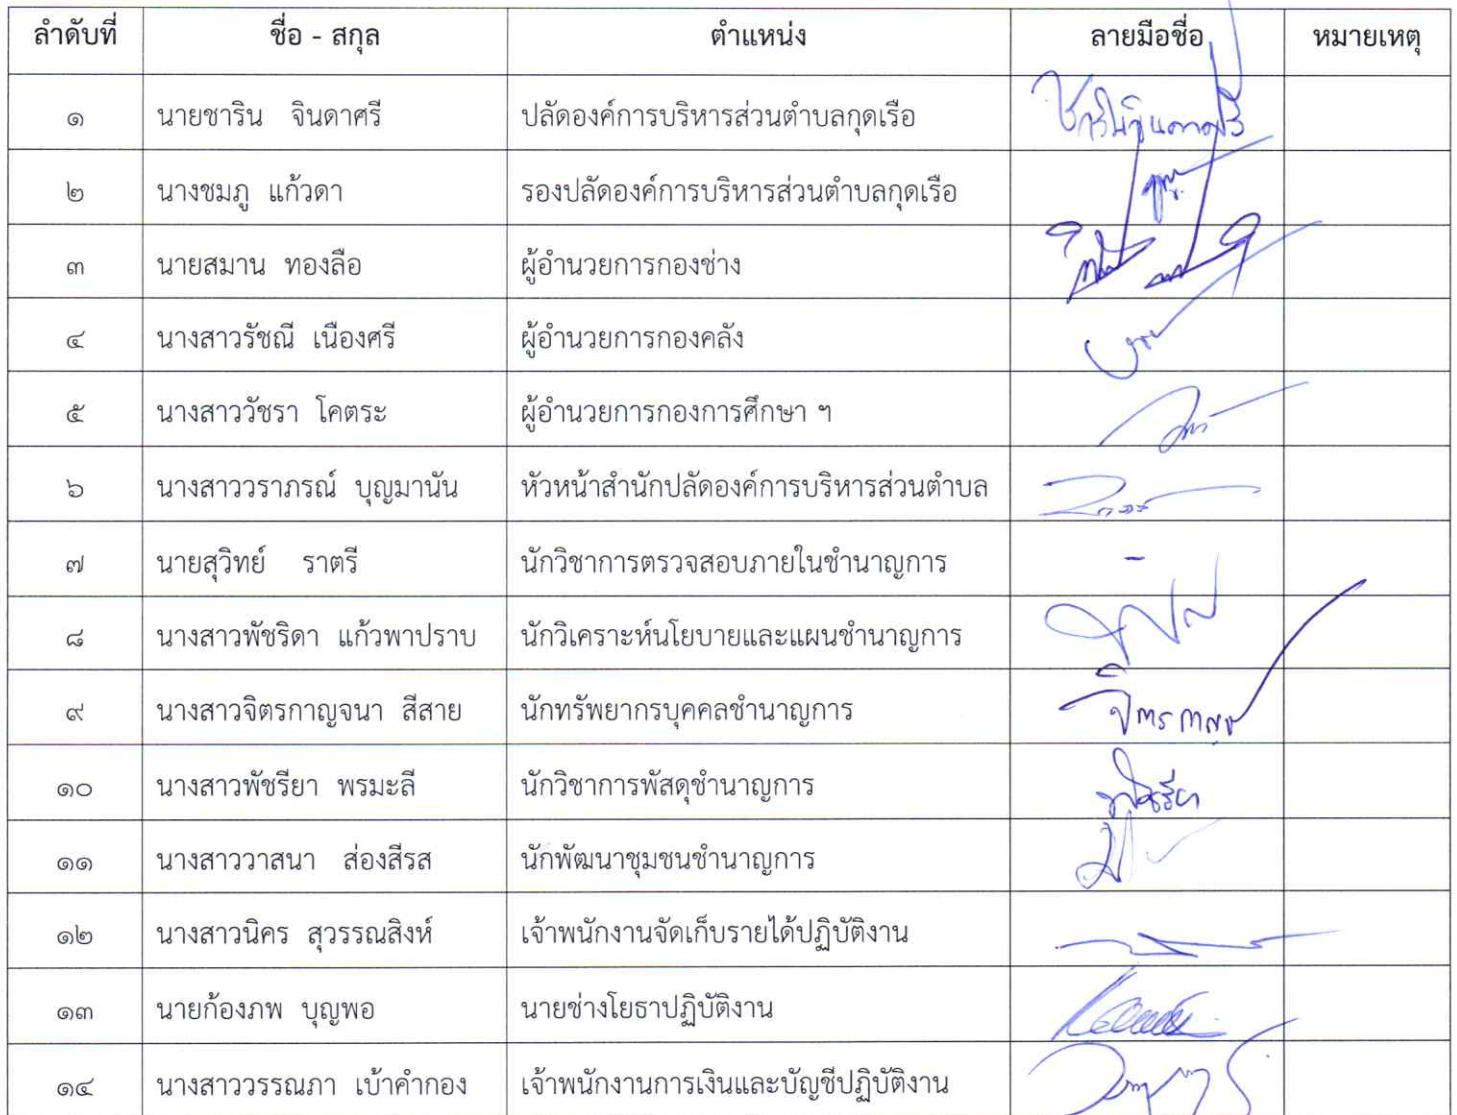 ลำดับที่ ชื่อ - สกุล ตำแหน่ง ลายมือชื่อ หมายเหตุ
๑ นายชาริน จินดาศรี ปลัดองค์การบริหารส่วนตำบลกุดเรือ ชาริน จินดาศรี
๒ นางชมภู แก้วดา รองปลัดองค์การบริหารส่วนตำบลกุดเรือ
๓ นายสมาน ทองลือ ผู้อำนวยการกองช่าง
๔ นางสาวรัชณี เนืองศรี ผู้อำนวยการกองคลัง
๕ นางสาววัชรา โคตระ ผู้อำนวยการกองการศึกษา ฯ
๖ นางสาววราภรณ์ บุญมานัน หัวหน้าสำนักปลัดองค์การบริหารส่วนตำบล
๗ นายสุวิทย์ ราตรี นักวิชาการตรวจสอบภายในชำนาญการ -
๘ นางสาวพัชริดา แก้วพาปราบ นักวิเคราะห์นโยบายและแผนชำนาญการ
๙ นางสาวจิตรกาญจนา สีสาย นักทรัพยากรบุคคลชำนาญการ
๑๐ นางสาวพัชรียา พรมะลี นักวิชาการพัสดุชำนาญการ พัชรียา
๑๑ นางสาววาสนา ส่องสีรส นักพัฒนาชุมชนชำนาญการ
๑๒ นางสาวนิคร สุวรรณสิงห์ เจ้าพนักงานจัดเก็บรายได้ปฏิบัติงาน
๑๓ นายก้องภพ บุญพอ นายช่างโยธาปฏิบัติงาน
๑๔ นางสาววรรณภา เบ้าคำกอง เจ้าพนักงานการเงินและบัญชีปฏิบัติงาน